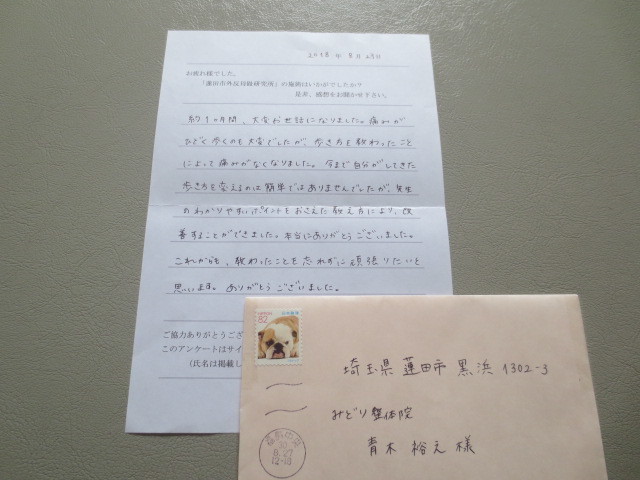 2018年8月25日
お疲れ様でした。
「蓮田市外反母趾研究所」の施術はいかがでしたか?
是非、感想をお聞かせ下さい。
約1ヵ月間、大変お世話になりました。痛みが
ひどく歩くのも大変でしたが、歩き方を教わったこと
によって痛みがなくなりました。今まで自分がしてきた
歩き方を変えるのは簡単ではありませんでしたが、先生
のわかりやすいポイントをおさえた教え方により、改
善することができました。本当にありがとうございました。
これからも、教わったことを忘れずに頑張りたいと
思います。ありがとうございました。
ご協力ありがとうござ
このアンケートはサイ
(氏名は掲載し
82
日本郵便
埼玉県蓮田市黒浜1302-3
みどり整体院
青木裕之様